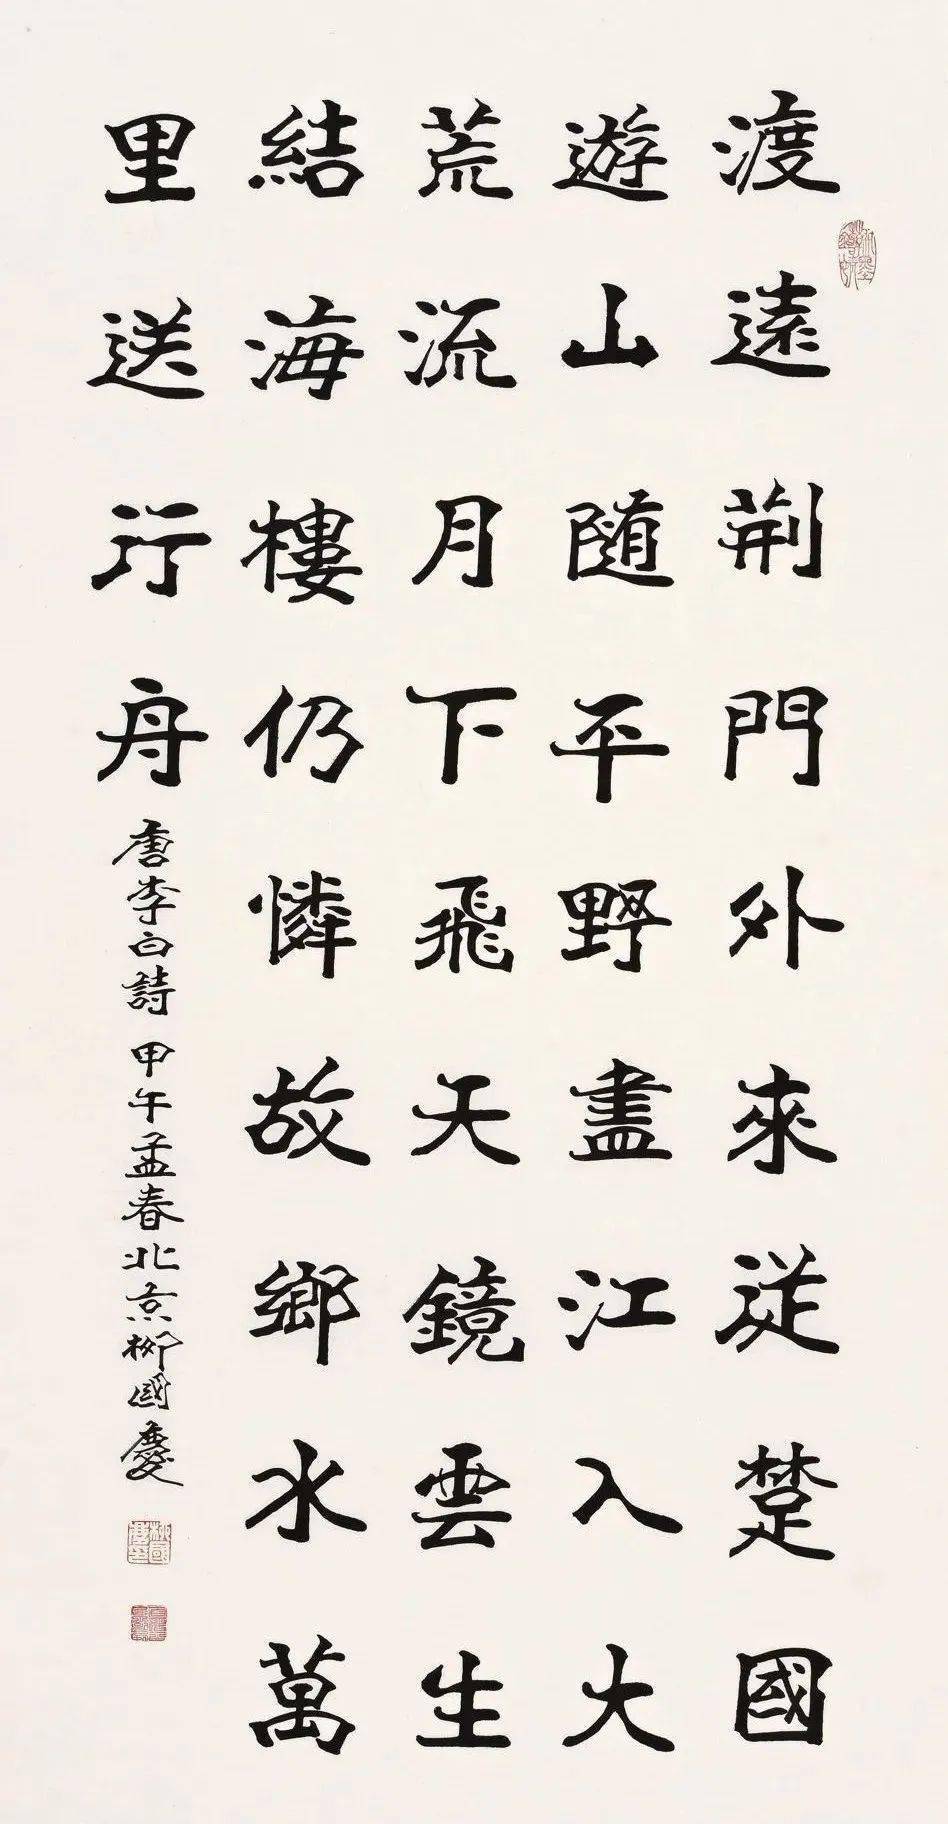 渡遠荆門外來從楚國
遊山随平野盡江入大
荒流月下飛天鏡雲生
結海樓仍憐故鄉水萬
里送行舟
唐李白詩 甲午孟春北京柳國慶